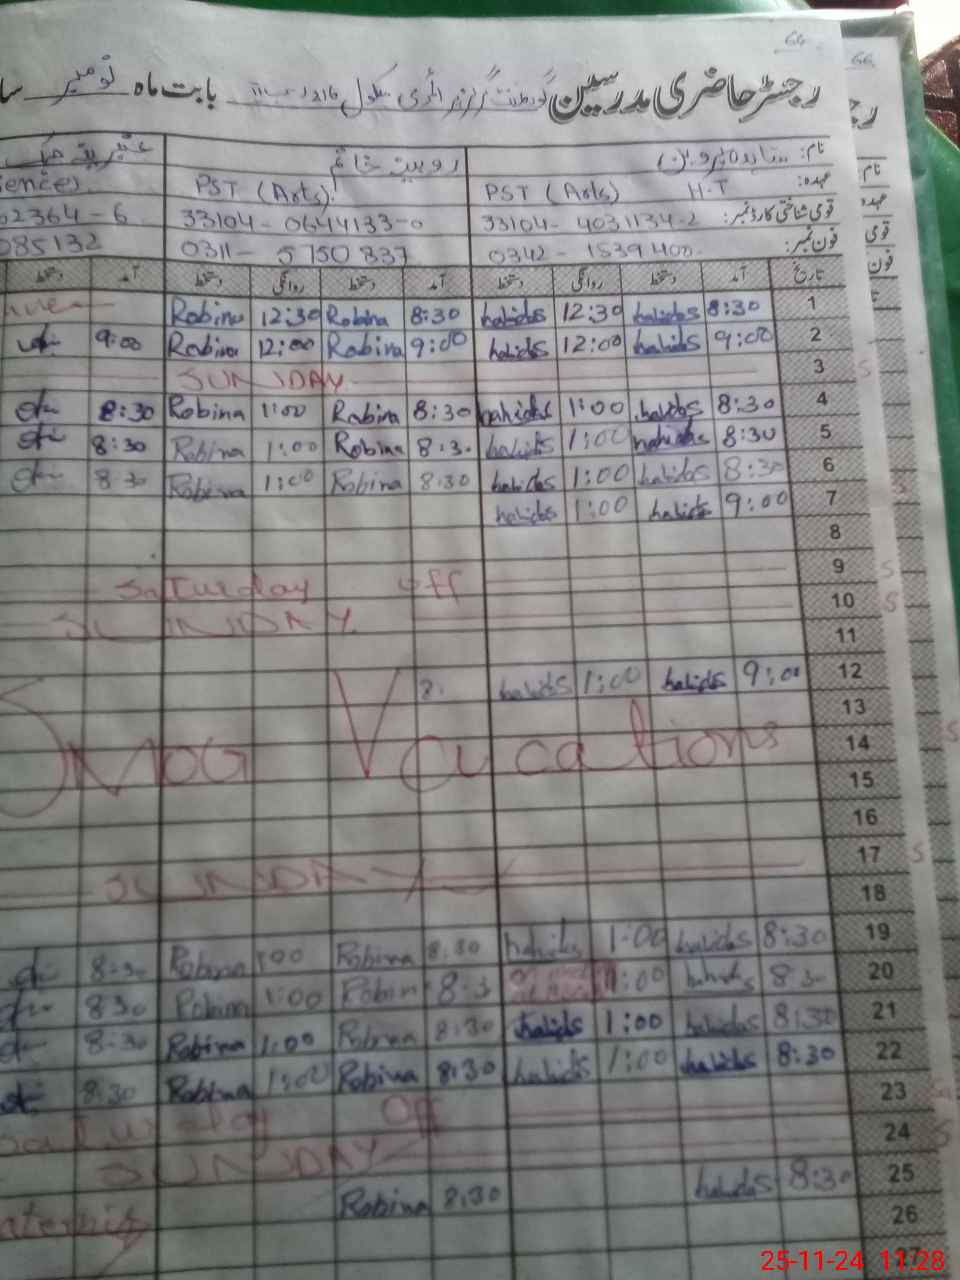 64
66
رجسٹر حاضری مدرسین گورنمنٹ گرلز پرائمری سکول بابت ماہ نومبر سا
نام: روبینہ خانم
عہدہ: H.T PST (Arts) PST (Arts) ence)
قومی شناختی کارڈ نمبر: 33104-4031134-2 33104-0644133-0 02364-6
فون نمبر: 0342-1539400 0311-5750837 085132
تاریخ آمد دستخط روانگی دستخط آمد دستخط روانگی دستخط آمد دستخط
1 8:30 halids 12:30 halids 8:30 Robina 12:30 Robina
2 9:00 halids 12:00 halids 9:00 Robina 12:00 Robina 9:00
3 SUNDAY
4 8:30 halids 1:00 halids 8:30 Robina 1:00 Robina 8:30
5 8:30 halids 1:00 halids 8:30 Robina 1:00 Robina 8:30
6 8:30 halids 1:00 halids 8:30 Robina 1:00 Robina 8:30
7 9:00 halids 1:00 halids
8
9 Saturday off
10 SUNDAY
11
12 9:00 halids 1:00 halids 8:
13
14 Smog Vacations
15
16
17 SUNDAY
18
19 8:30 halids 1:00 halids 8:30 Robina 1:00 Robina 8:30
20 8:30 halids 1:00 8:3 Robina 1:00 Robina 830
21 8:30 halids 1:00 halids 8:30 Robina 1:00 Robina 8:30
22 8:30 halids 1:00 halids 8:30 Robina 1:00 Robina 8:30
23 Saturday Off
24 SUNDAY
25 8:30 halids 8:30 Robina
26
25-11-24 11:28